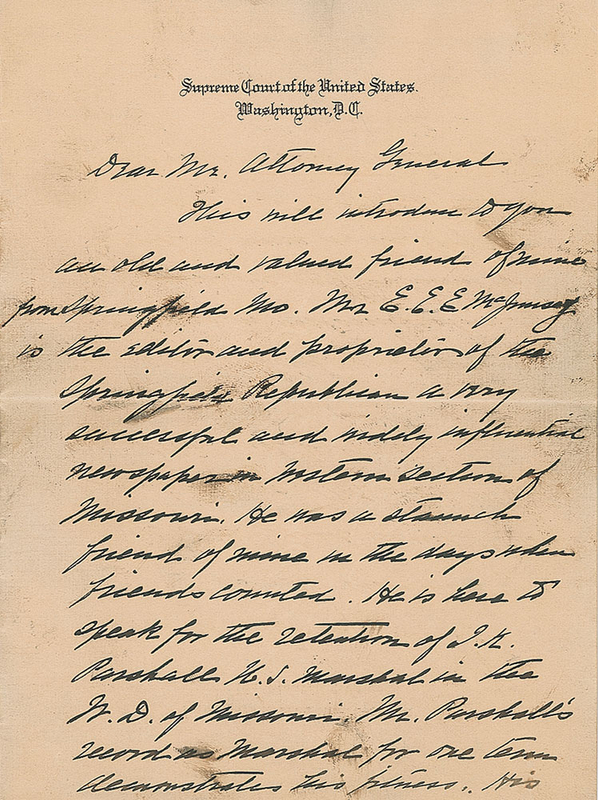 Supreme Court of the United States.
Washington, D.C.
Dear Mr. Attorney General
This will introduce to you
an old and valued friend of mine
from Springfield Mo. Mr E.E.E McJimsey
is the editor and proprietor of the
Springfield Republican a very
successful and widely influential
newspaper in Western section of
Missouri. He was a staunch
friend of mine in the days when
friends counted. He is here to
speak for the retention of I. K.
Parshall U.S. Marshal in the
W. D. of Missouri. Mr. Parshall's
record as Marshal for one term
demonstrates his fitness. His